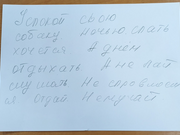 Успокой свою
собаку Ночью спать
хочется! А днем
отдыхать А не лай
слушать Не
и отдай Не мучай